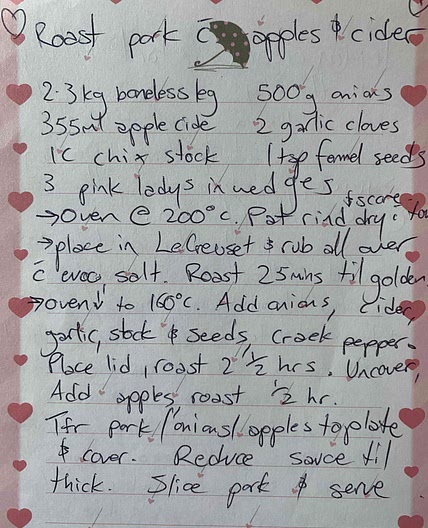 Roast pork c̄ apples & cider
2.3kg boneless leg 500g onions
355ml apple cide 2 garlic cloves
1C chix stock 1 tsp fennel seeds
3 pink ladys in wedges
→Oven @ 200°c. Pat rind dry & score
→place in LeCreuset & rub all over
c̄ evoo, salt. Roast 25mins til golden
→oven↓ to 160°c. Add onions, cider,
garlic, stock & seeds, crack pepper.
Place lid, roast 2 1/2 hrs. Uncover,
Add apples, roast 1/2 hr.
Tfr pork/onions/apples to plate
& cover. Reduce sauce til
thick. Slice pork & serve